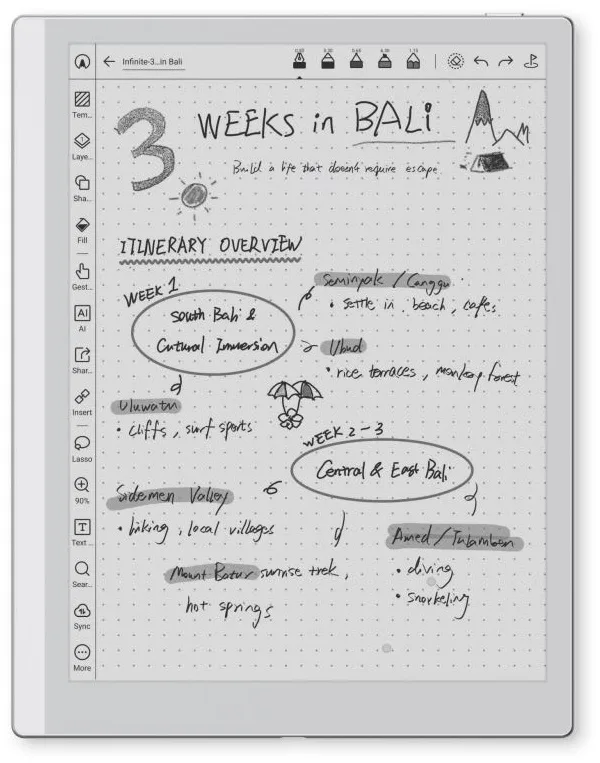 Infinite-3...in Bali
Tem...
Laye...
Sha...
Fill
Gest...
AI
AI
Shar...
Insert
Lasso
90%
T
Text ...
Sear...
Sync
More
3 WEEKS in BALi
Build a life that doesn't require escape
ITINERARY OVERVIEW
WEEK 1
South Bali &
Cutural Immersion
Seminyak / Canggu
• settle in, beach, cafes
Ubud
• rice terraces, monkey forest
Uluwatu
• cliffs, surf spots
WEEK 2-3
Central & East Bali
Sidemen Valley
• hiking, local villages
Mount Batur sunrise trek,
hot springs
Amed / Tulamben
• diving
• snorkeling